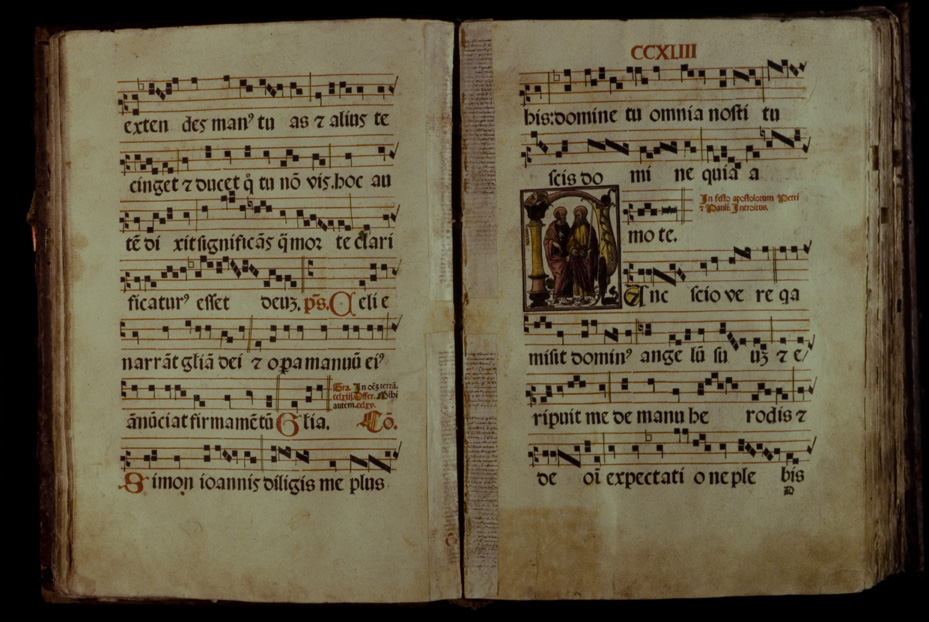 exten des man⁹ tu as ⁊ alius te
cinget ⁊ ducet q̊ tu nõ vis. hoc au
tẽ di xit significãs q̃ mor te clari
ficatur⁹ esset deuʒ. ps̃. Celi e
narrãt gl̃iã dei ⁊ opa manuũ ei⁹
Gra. In oẽʒ terrã.
Offer. Mihi
autem.
ãnũciat firmamẽtũ Gl̃ia. Cõ.
Simon ioannis diligis me plus
CCXLIII
his: domine tu omnia nosti tu
scis do mi ne quia a
In festo apostolorum Petri
⁊ Pauli. Introitus.
mo te.
Nunc scio ve re qa
misit domin⁹ ange lũ su uʒ ⁊ e/
ripuit me de manu he rodis ⁊
de oĩ expectati o ne ple bis